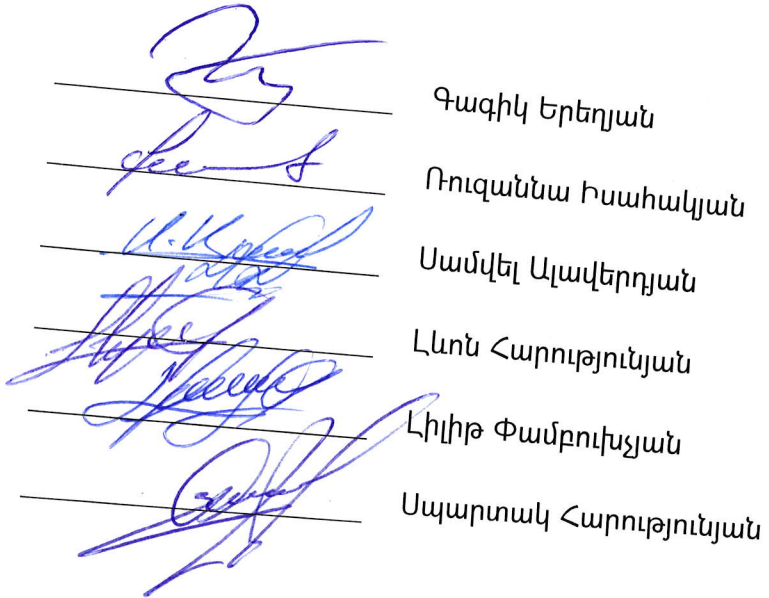 Գագիկ Երեղյան
Ռուզաննա Իսահակյան
Սամվել Ալավերդյան
Լևոն Հարությունյան
Լիլիթ Փամբուխչյան
Սպարտակ Հարությունյան